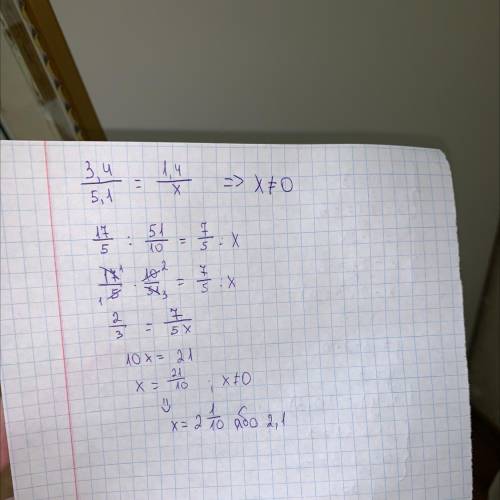 3,4/5,1 = 1,4/x => x≠0
17/5 : 51/10 = 7/5 : x
17¹/₁5 · 10²/51₃ = 7/5 : x
2/3 = 7/5x
10x = 21
x = 21/10 , x≠0
=>
x = 2 1/10 або 2,1